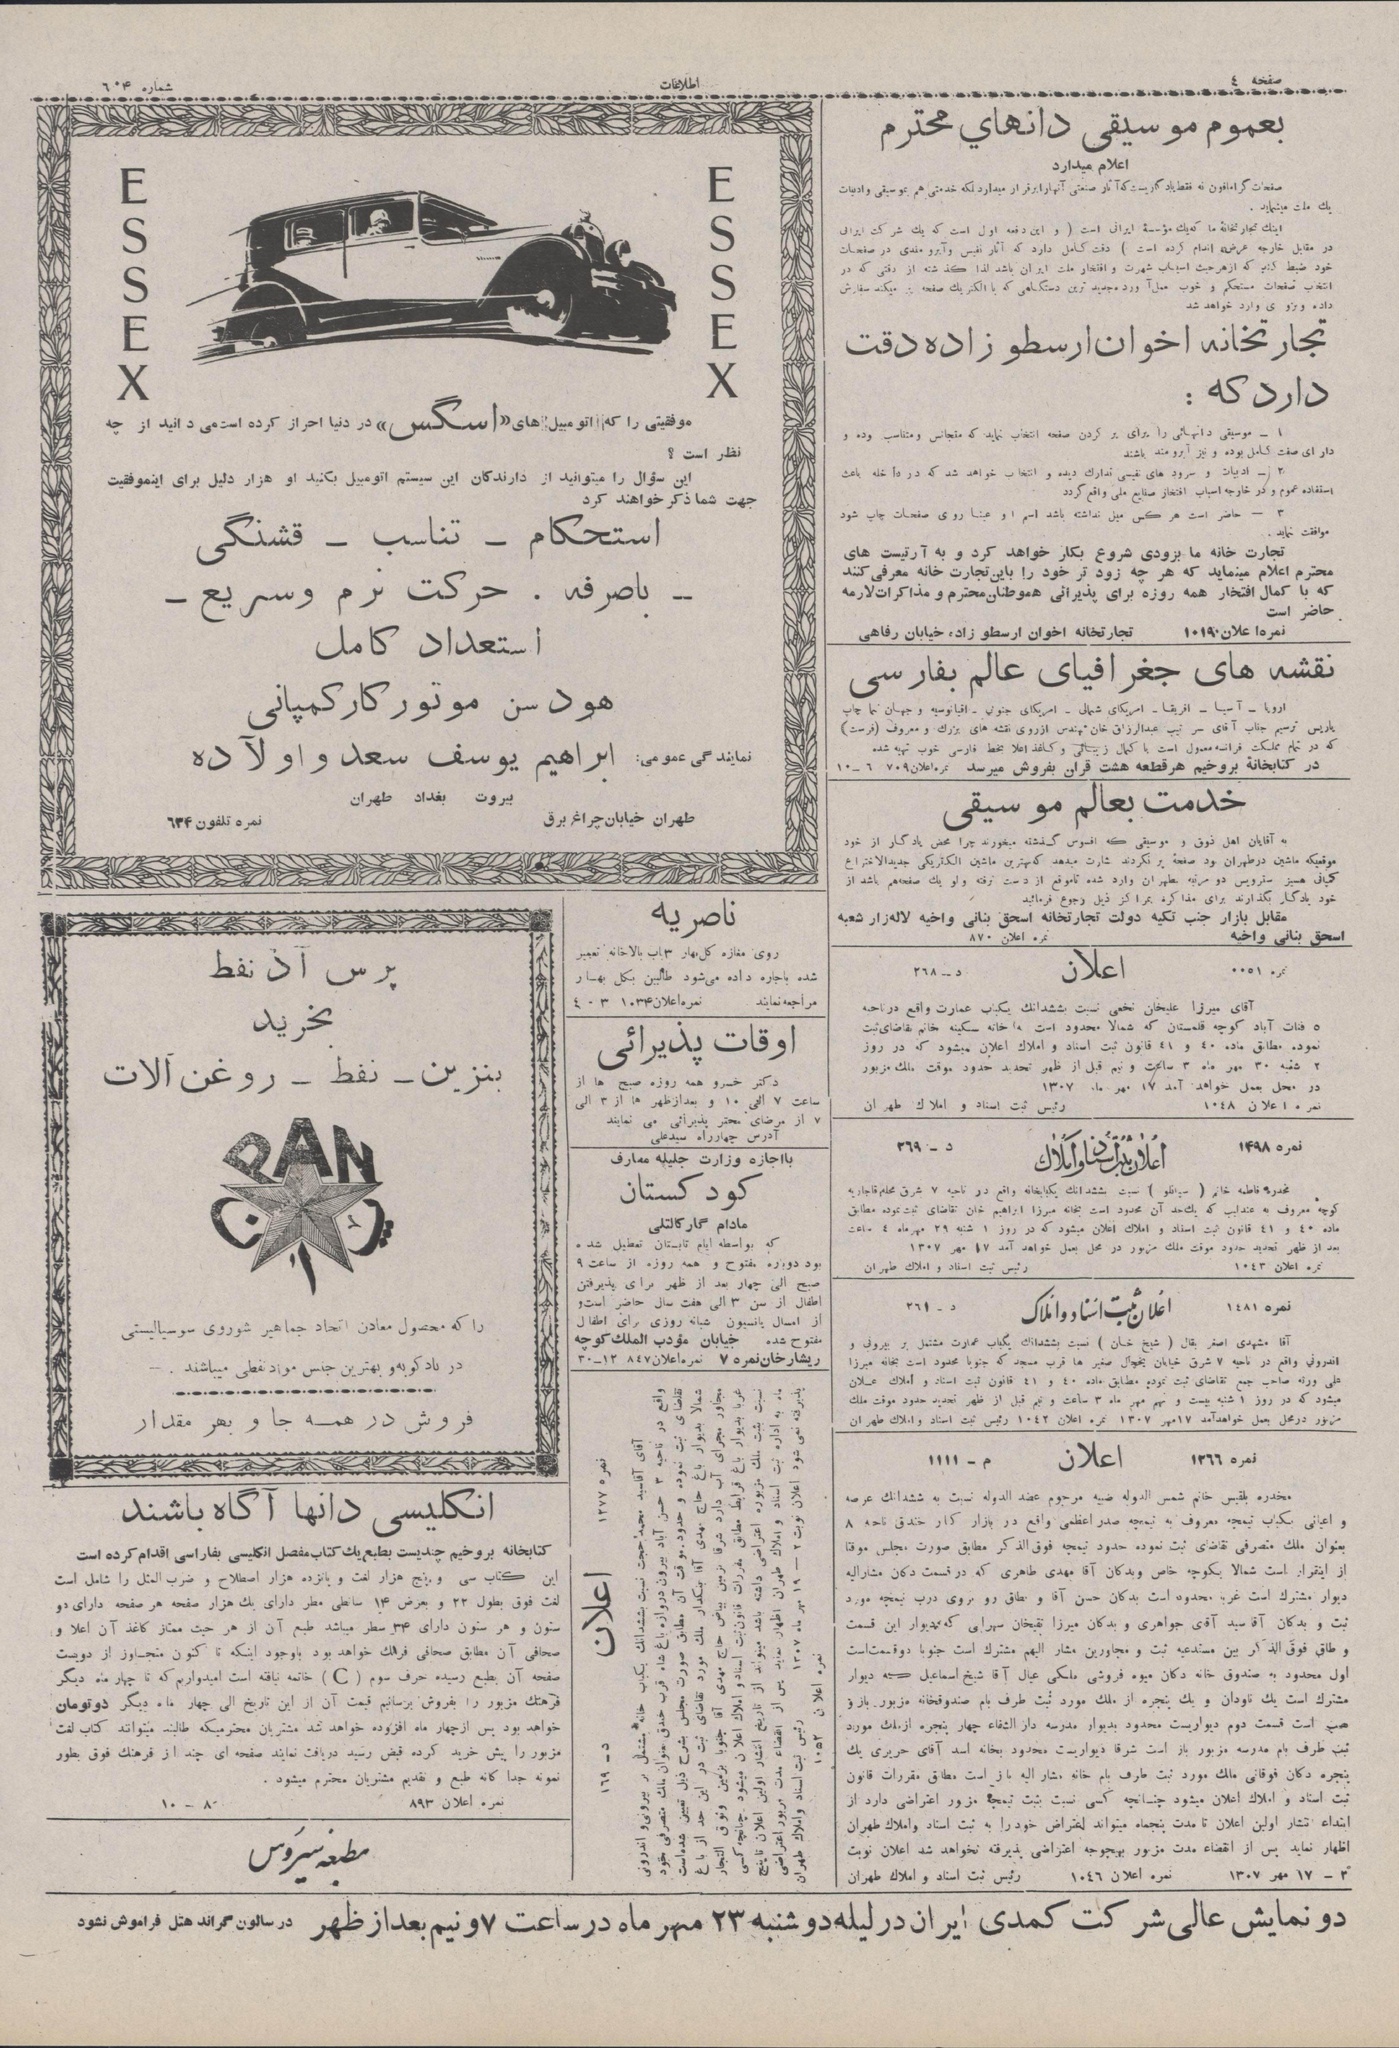 صفحه ٤
اطلاعات
شماره ٦٠۴
بعموم موسیقی دانهای محترم
اعلام میدارد
صفحات گرامافون نه فقط یادگاریست که آثار صنعتی آنها را برقرار میدارد بلکه خدمتی هم بموسیقی و ادبیات
یك ملت مینماید .
اینك تجارتخانۀ ما که یك مؤسسۀ ایرانی است ( و این دفعه اول است که یك شرکت ایرانی
در مقابل خارجه عرض اندام کرده است ) دقت کامل دارد که آثار نفیس و آبرومندی در صفحات
خود ضبط کند که از هر حیث اسباب شهرت و افتخار ملت ایران باشد لذا گذشته از دقتی که در
انتخاب صفحات مستحکم و خوب بعمل آورده جدید ترین دستگاهی که با الکتریك صفحه پر میکند سفارش
داده وبزودی وارد خواهد شد
تجارتخانه اخوان ارسطو زاده دقت
دارد که :
١ ــ موسیقی دانهائی را برای پر کردن صفحه انتخاب نماید که متجانس ومتناسب بوده و
دارای صفت کامل بوده و نیز آبرومند باشند
٢ ــ ادبیات و سرود های نفیسی تدارك دیده و انتخاب خواهد شد که در داخله باعث
استفاده عموم و در خارجه اسباب افتخار صنایع ملی واقع گردد
٣ ــ حاضر است هر کس میل نداشته باشد اسم او عینا روی صفحات چاپ شود
موافقت نماید .
تجارت خانه ما بزودی شروع بکار خواهد کرد و به آرتیست های
محترم اعلام مینماید که هر چه زود تر خود را باین تجارت خانه معرفی کنند
که با کمال افتخار همه روزه برای پذیرائی هموطنان محترم و مذاکرات لازمه
حاضر است
نمره اعلان ١٠١٩٠ تجارتخانه اخوان ارسطو زاده خیابان رفاهی
نقشه های جغرافیای عالم بفارسی
اروپا ــ آسیا ــ افریقا ــ امریکای شمالی ــ امریکای جنوبی ــ اقیانوسیه و جهان نما چاپ
پاریس ترسیم جناب آقای سر تیپ عبدالرزاق خان مهندس ازروی نقشه های بزرك و معروف (فرست)
که در تمام مملکت فرانسه معمول است با کمال زیبائی و کاغذ اعلا بخط فارسی خوب تهیه شده
در کتابخانۀ بروخیم هرقطعه هشت قران بفروش میرسد نمره اعلان ٧٠٩ ٦ــ١٠
خدمت بعالم موسیقی
به آقایان اهل ذوق و موسیقی که افسوس گذشته میخورند چرا محض یادگار از خود
موقعیکه ماشین درطهران بود صفحۀ پر نکردند بشارت میدهد که بهترین ماشین الکتریکی جدیدالاختراع
کمپانی هسیز مسترویس دو مرتبه بطهران وارد شده تا موقع از دست نرفته ولو یك صفحه هم باشد از
خود یادگار بگذارند برای مذاکره بمراکز ذیل رجوع فرمائید
مقابل بازار جنب تکیه دولت تجارتخانه اسحق بنانی واخیه لاله زار شعبه
اسحق بنانی واخیه نمره اعلان ٨٧٠
نمره ٠٠٥١ اعلان د ــ ٢٦٨
آقای میرزا علیخان نخعی نسبت بششدانك یکباب عمارت واقع در ناحیه
٥ قنات آباد کوچه قلمستان که شمالا محدود است به خانه سکینه خانم تقاضای ثبت
نموده مطابق ماده ٤٠ و ٤١ قانون ثبت اسناد و املاك اعلان میشود که در روز
٢ شنبه ٣٠ مهر ماه ٣ ساعت و نیم قبل از ظهر تحدید حدود موقت ملك مزبور
در محل بعمل خواهد آمد ١٧ مهر ماه ١٣٠٧
نمره اعلان ١٠٤٨ رئیس ثبت اسناد و املاك طهران
نمره ١٤٩٨ اعلان ثبت اسناد و املاك د ــ ٢٦٩
مخدره فاطمه خانم ( سیانلو ) نسبت بششدانك یکبابخانه واقع در ناحیه ٧ شرق محله قاجاریه
کوچه معروف به عندلیب که یك حد آن محدود است بخانه میرزا ابراهیم خان تقاضای ثبت نموده مطابق
ماده ٤٠ و ٤١ قانون ثبت اسناد و املاك اعلان میشود که در روز ١ شنبه ٢٩ مهر ماه ٤ ساعت
بعد از ظهر تحدید حدود موقت ملك مزبور در محل بعمل خواهد آمد ١٧ مهر ١٣٠٧
نمره اعلان ١٠٤٣ رئیس ثبت اسناد و املاك طهران
نمره ١٤٨١ اعلان ثبت اسناد و املاك د ــ ٢٦١
آقا مشهدی اصغر بقال ( شیخ خان ) نسبت بششدانك یکباب عمارت مشتمل بر بیرونی و
اندرونی واقع در ناحیه ٧ شرق خیابان یخچال صغیر ها قرب مسجد که جنوبا محدود است بخانه میرزا
علی ورثه صاحب جمع تقاضای ثبت نموده مطابق ماده ٤٠ و ٤١ قانون ثبت اسناد و املاك اعلان
میشود که در روز ١ شنبه بیست و نهم مهر ماه ٣ ساعت و نیم قبل از ظهر تحدید حدود موقت ملك
مزبور درمحل بعمل خواهدآمد ١٧مهر ١٣٠٧ نمره اعلان ١٠٤٢ رئیس ثبت اسناد و املاك طهران
نمره ١٢٦٦ اعلان م ــ ١١١١
مخدره بلقیس خانم شمس الدوله صبیه مرحوم عضد الدوله نسبت به ششدانك عرصه
و اعیانی یکباب تیمچه معروف به تیمچه صدر اعظمی واقع در بازار کنار خندق ناحیه ٨
بعنوان ملك متصرفی تقاضای ثبت نموده حدود تیمچه فوق الذکر مطابق صورت مجلس موقتا
از اینقرار است شمالا بکوچه خاص وبدکان آقا مهدی طاهری که در قسمت دکان مشارالیه
دیوار مشترك است غربا محدود است بدکان حسن آقا و بطاق رو بروی درب تیمچه مورد
ثبت و بدکان آقا سید آقای جواهری و بدکان میرزا تقیخان سهرابی که بدیوار این قسمت
و طاق فوق الذکر بین مستدعیه ثبت و مجاورین مشار الیهم مشترك است جنوبا دوقسمت است
اول محدود به صندوق خانه دکان میوه فروشی ملکی عیال آقا شیخ اسماعیل که دیوار
مشترك است یك ناودان و یك پنجره از ملك مورد ثبت طرف بام صندوقخانه مزبور باز و
نصب است قسمت دوم دیواریست محدود بدیوار مدرسه دار الشفاء چهار پنجره از ملك مورد
ثبت طرف بام مدرسه مزبور باز است شرقا دیواریست محدود بخانه اسد آقای حریری یك
پنجره دکان فوقانی مالك مورد ثبت طرف بام خانه مشار الیه باز است مطابق مقررات قانون
ثبت اسناد و املاك اعلان میشود چنانچه کسی نسبت بثبت تیمچه مزبور اعتراضی دارد از
ابتداء انتشار اولین اعلان تا مدت پنجماه میتواند اعتراض خود را به ثبت اسناد واملاك طهران
اظهار نماید پس از انقضاء مدت مزبور بهیچوجه اعتراضی پذیرفته نخواهد شد اعلان نوبت
٣ ــ ١٧ مهر ١٣٠٧ نمره اعلان ١٠٤٦ رئیس ثبت اسناد و املاك طهران
ESSEX
ESSEX
موفقیتی را که اتومبیل های «اسگس» در دنیا احراز کرده است می دانید از چه
نظر است ؟
این سؤال را میتوانید از دارندگان این سیستم اتومبیل بکنید او هزار دلیل برای اینموفقیت
جهت شما ذکر خواهند کرد
استحکام ــ تناسب ــ قشنگی
ــ باصرفه . حرکت نرم وسریع ــ
استعداد کامل
هودسن موتور کار کمپانی
نمایندگی عمومی: ابراهیم یوسف سعد و اولاده
بیروت بغداد طهران
طهران خیابان چراغ برق نمره تلفون ٦٣۴
ناصریه
روی مغازه گل بهار ٣ باب بالاخانه تعمیر
شده باجاره داده می‌شود طالبین بگل بهار
مراجعه نمایند نمره اعلان ١٠٣۴ ٣ ــ ٤
اوقات پذیرائی
دکتر خسرو همه روزه صبح ها از
ساعت ٧ الی ١٠ و بعدازظهر ها از ٣ الی
٧ از مرضای محترم پذیرائی می نمایند
آدرس چهارراه سیدعلی
بااجازه وزارت جلیله معارف
کودکستان
مادام گارکالتلی
که بواسطه ایام تابستان تعطیل شده
بود دوباره مفتوح و همه روزه از ساعت ٩
صبح الی چهار بعد از ظهر برای پذیرفتن
اطفال از سن ٣ الی هفت سال حاضر است و
از امسال پانسیون شبانه روزی برای اطفال
مفتوح شده خیابان مؤدب الملك کوچه
ریشارخان نمره ٧ نمره اعلان ٨٤٧ ١٢ــ٣٠
پرس آذ نفط
بخرید
بنزین ــ نفط ــ روغن آلات
PAN
را که محصول معادن اتحاد جماهیر شوروی سوسیالیستی
در بادکوبه و بهترین جنس مواد نفطی میباشند . ــ
فروش در همه جا و بهر مقدار
انگلیسی دانها آگاه باشند
کتابخانه بروخیم چندیست بطبع یك کتاب مفصل انگلیسی بفارسی اقدام کرده است
این کتاب سی و پنج هزار لغت و پانزده هزار اصطلاح و ضرب المثل را شامل است
لغت فوق بطول ٢٢ و بعرض ١۴ سانطی مطر دارای یك هزار صفحه هر صفحه دارای دو
ستون و هر ستون دارای ۳۴ سطر میباشد طبع آن از هر حیث ممتاز کاغذ آن اعلا و
صحافی آن مطابق صحافی فرنك خواهد بود باوجود اینکه تا کنون متجاوز از دویست
صفحه آن بطبع رسیده حرف سوم ( C ) خاتمه نیافته است امیدواریم که تا چهار ماه دیگر
فرهنك مزبور را بفروش برسانیم قیمت آن از این تاریخ الی چهار ماه دیگر دوتومان
خواهد بود پس ازچهار ماه افزوده خواهد شد مشتریان محترمیکه طالبند میتوانند کتاب لغت
مزبور را پیش خرید کرده قبض رسید دریافت نمایند صفحه ای چند از فرهنك فوق بطور
نمونه جدا گانه طبع و تقدیم مشتریان محترم میشود .
نمره اعلان ٨٩٣ ٨ ــ ١٠
مطبعه سیروس
نمره ١٢٧٧ اعلان د ــ ١٦٩
آقای آقاسید محمد حجت نسبت بششدانك یکباب خانه مشتمل بر بیرونی و اندرونی
واقع در ناحیه ٣ حسن آباد بیرون دروازه باغ شاه قرب خندق بعنوان ملك متصرفی خود
تقاضای ثبت نموده و حدود موقت آن مطابق صورت مجلس بشرح ذیل تعیین شده است
نمره اعلان ١٠٥٢
دو نمایش عالی شرکت کمدی ایران در لیله دوشنبه ٢٣ مهر ماه در ساعت ٧ ونیم بعد از ظهر در سالون گراند هتل فراموش نشود